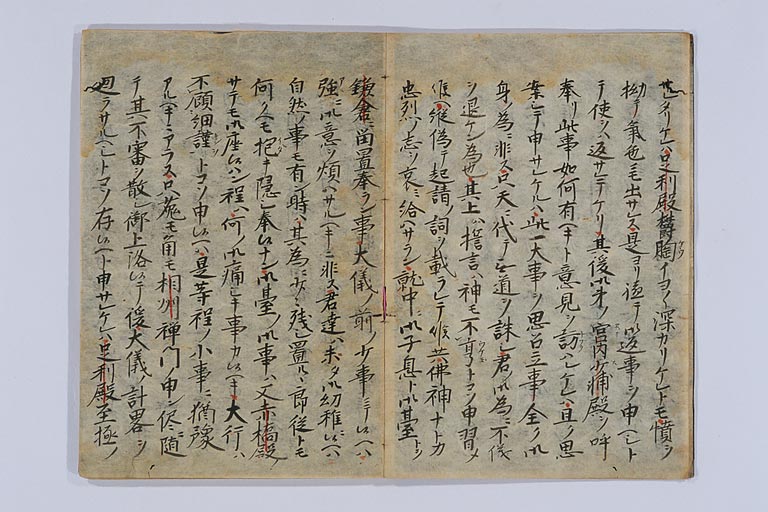 セレタリケレハ足利殿欝胸イヨ〳〵深カリケレトモ憤ヲ
抑テ氣色ニモ出サレス是ヨリ遮テ御返事ヲ申ヘシト
テ使ヲハ返サレテケリ其後御弟ノ宮内少輔殿ヲ呼
奉リ此事如何有ヘキト意見ヲ訪ハレケルニ且ク思
案シテ申サレケルハ此一大事ヲ思召立事全ク御
身ノ為ニ非ス只天ニ代テ無道ヲ誅シ君ノ御為ニ不儀
ヲ退ケン為也其上ハ誓言ハ神モ不享トコソ申習ヘ
候ヘ縦偽テ起請ノ詞ヲ載ラレテ候共佛神ナトカ
忠烈ノ志ヲ哀ミ給ハサラン就中ニ御子息ト御臺トヲ
鎌倉ニ留置奉ラン事大儀ノ前ノ少事ニテ候ヘハ
強ニ御意ヲ煩ハサルヘキニ非ス君達ハ未タ御幼稚ニ候ヘハ
自然ノ事モ有ン時ハ其為ニ少々残シ置ルヽ郎従トモ
何クヘモ抱キ隠シ奉候ナン御臺ノ御事ハ又赤橋殿
サテモ御座候ハン程ハ何ノ御痛シキ事カ候ヘキ大行ハ
不顧細謹トコソ申候ヘ是等程ノ小事ニ猶豫
アルヘキニアラス兎モ角モ相州禅門ノ申ン侭ニ随
テ其不審ヲ散シ御上洛候テ後大儀ノ計畧ヲ
廻ラサルヘシトコソ存候ヘト申サレケレハ足利殿至極ノ